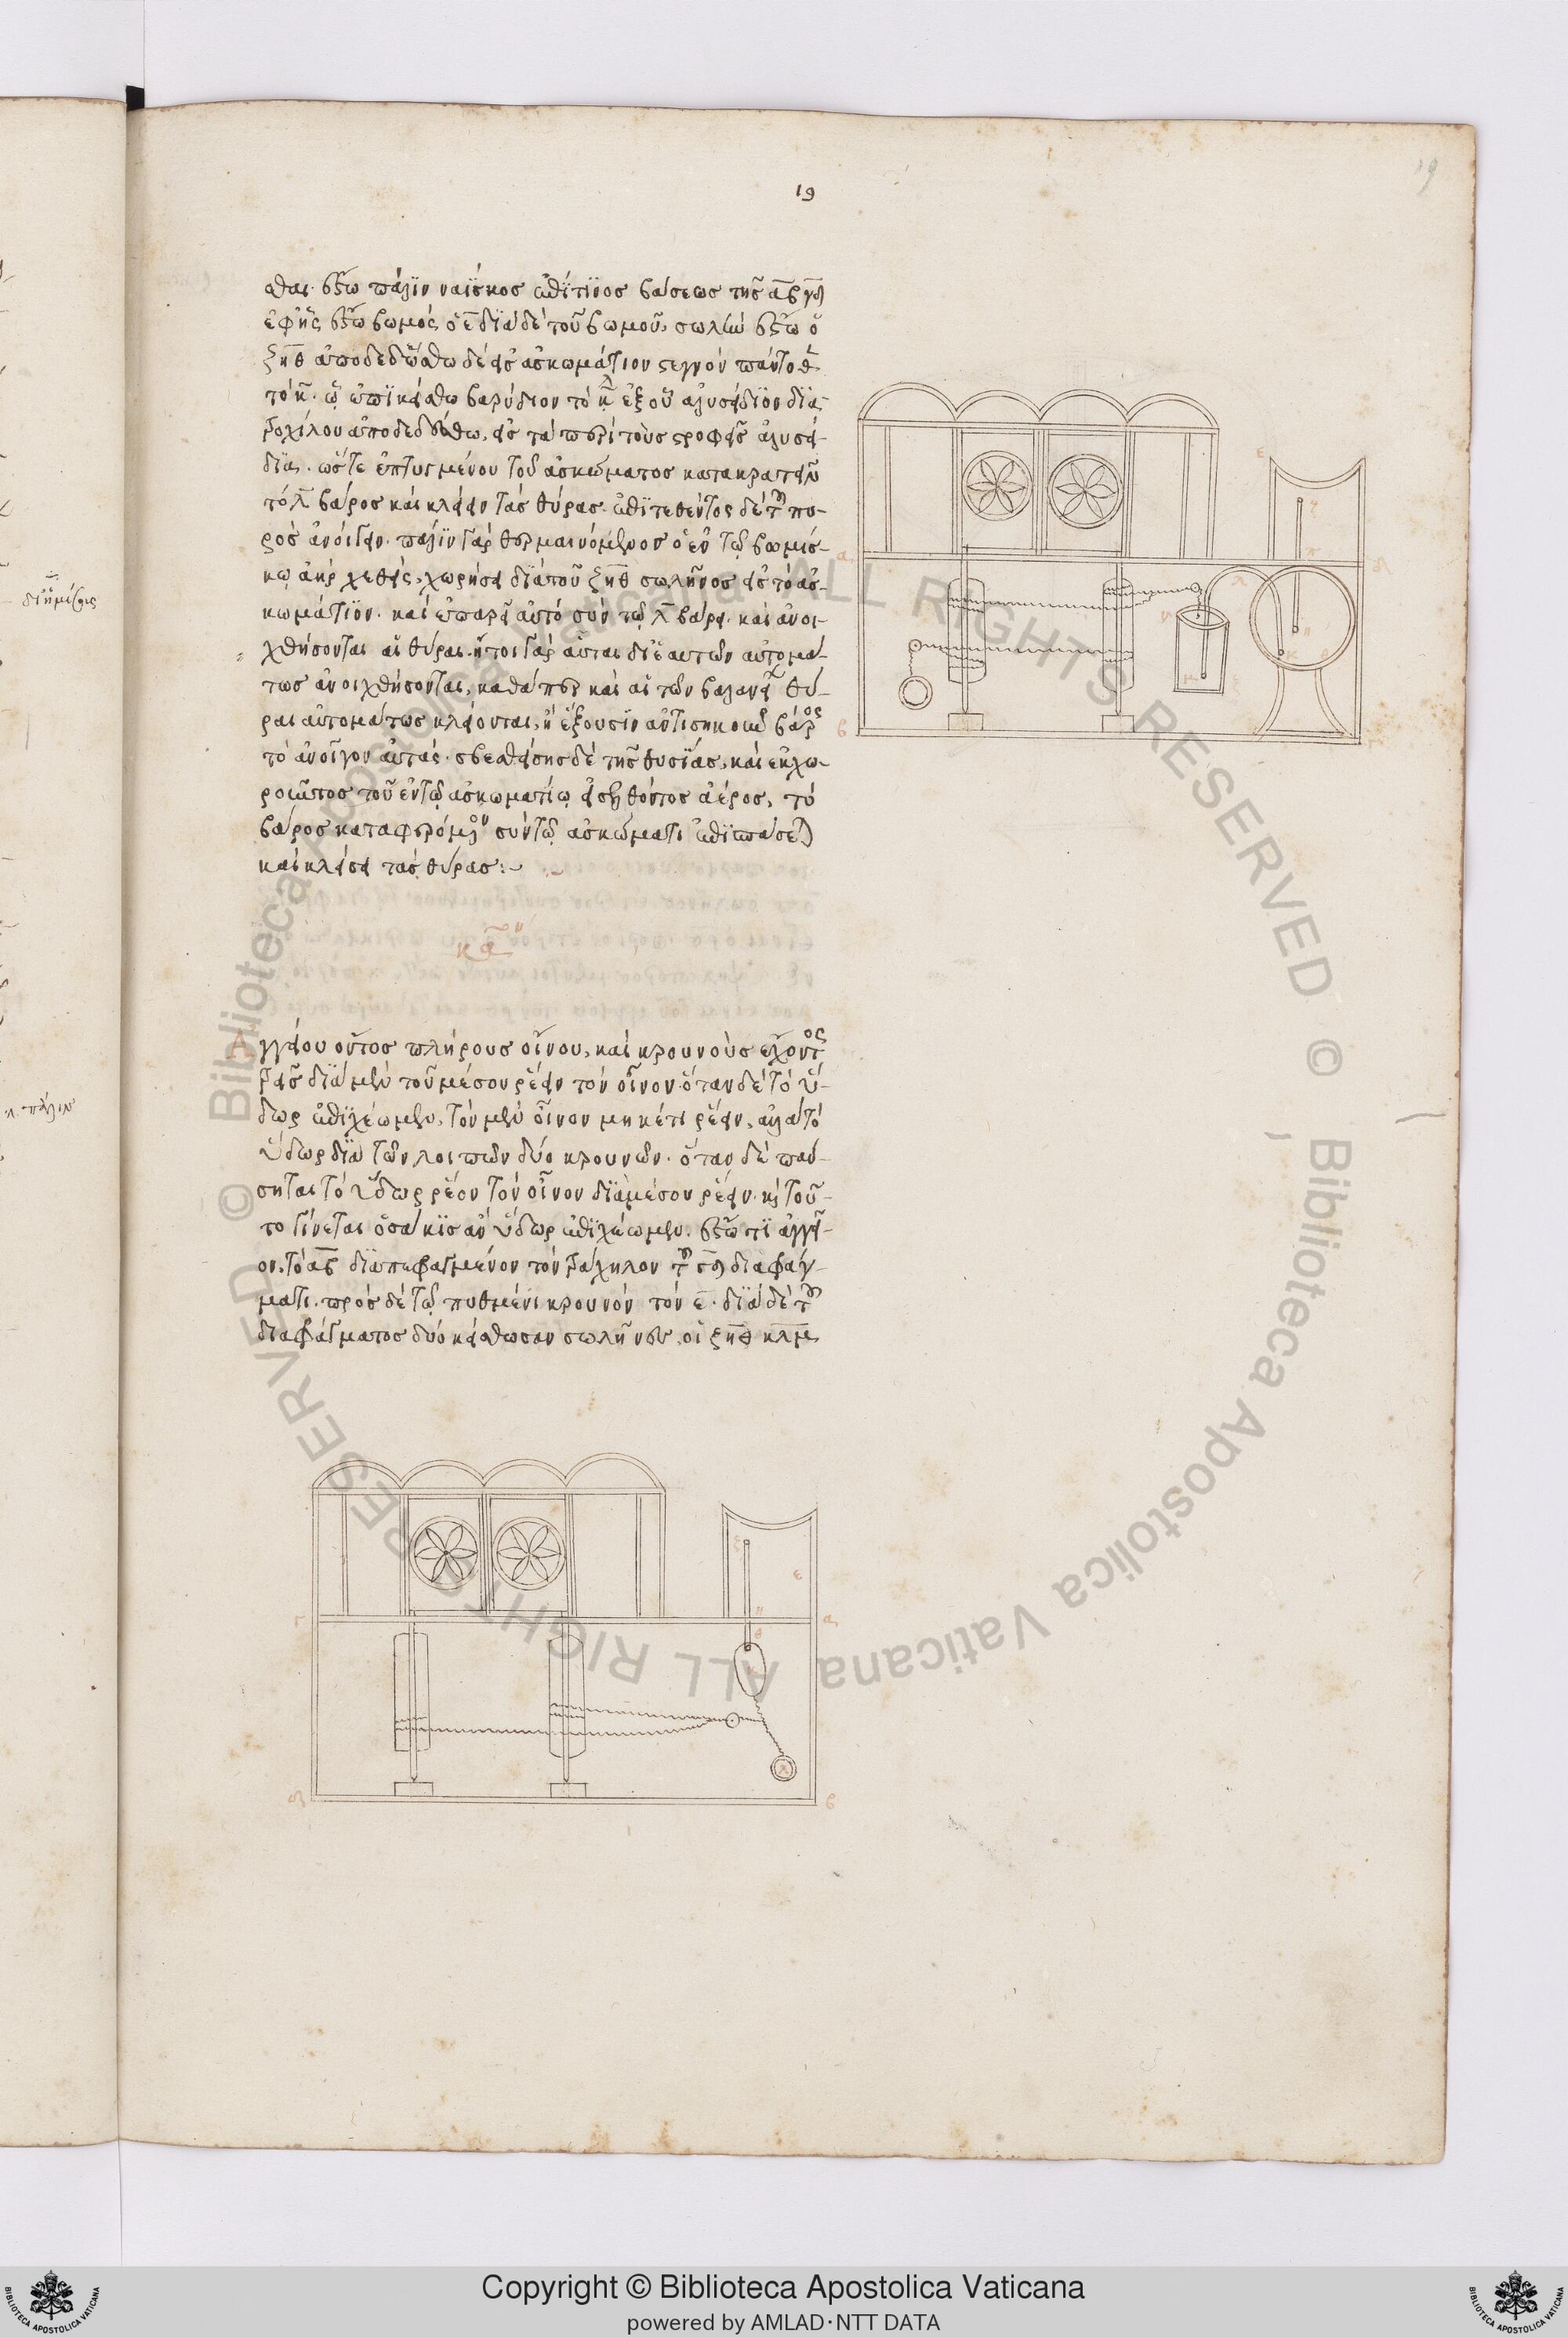 19
19
σθαι. ἔστω πάλιν ναΐσκος ἐπί τινος βάσεως τῆς αβγδ
ἐφ ἧς ἔστω βωμός, ὁ ε διὰ δὲ τοῦ βωμοῦ, σωλὴν ἔστω ὁ
ζηθ ἀποδεδόσθω δὲ εἰς ἀσκωμάτιον στεγνὸν πάντοθεν
τὸ κ. ᾧ ἐπικείσθω βαρύδιον τὸ λ ἐξ οὗ ἁλυσείδιον διὰ
τροχίλου ἀποδεδόσθω, εἰς τὰ περὶ τοὺς στροφεῖς ἁλυσεί-
δια. ὥστε ἐπτυγμένου τοῦ ἀσκώματος κατακρατεῖν
τὸ λ βάρος καὶ κλείειν τὰς θύρας. ἐπιτεθέντος δὲ τοῦ πυ-
ρὸς ἀνοίγειν. πάλιν γὰρ θερμαινόμενος ὁ ἐν τῷ βωμίσ-
κῳ ἀὴρ χεθείς, χωρήσει διὰ τοῦ ζηθ σωλῆνος εἰς τὸ ἀσ-
κωμάτιον. καὶ ἐπαρεῖ αὐτὸ σὺν τῷ λ βάρει. καὶ ἀνοι-
χθήσονται αἱ θύραι. ἤτοι γὰρ αὗται δι ἑαυτῶν αὐτομά-
τως ἀνοιχθήσονται, καθάπερ καὶ αἱ τῶν βαλανείων θύ-
ραι αὐτομάτως κλείονται, ἢ ἕξουσιν ἀντισήκωμα βάρος
τὸ ἀνοῖγον αὐτάς. σβεσθείσης δὲ τῆς θυσίας, καὶ ἐκχω-
ροῦντος τοῦ ἐν τῷ ἀσκωματίῳ εἰσελθόντος ἀέρος, τὸ
βάρος καταφερόμενον σὺν τῷ ἀσκώματι ἐπισπάσεται
καὶ κλείσει τὰς θύρας:
κα
Ἀγγείου ὄντος πλήρους οἴνου, καὶ κρουνοὺς ἔχοντος
τρεῖς διὰ μὲν τοῦ μέσου ῥέειν τὸν οἶνον. ὅταν δὲ τὸ ὕ-
δωρ ἐπιχέωμεν, τὸν μὲν οἶνον μηκέτι ῥέειν, ἀλλὰ τὸ
ὕδωρ διὰ τῶν λοιπῶν δύο κρουνῶν. ὅταν δὲ παύ-
σηται τὸ ὕδωρ ῥέον τὸν οἶνον διὰ μέσου ῥέειν. καὶ τοῦ-
το γίνεται ὁσάκις ἂν ὕδωρ ἐπιχέωμεν. ἔστω τι ἀγγεῖ-
ον, τὸ αβ διαπεφραγμένον τὸν τράχηλον τῷ γδ διαφράγ-
ματι. πρὸς δὲ τῷ πυθμένι κρουνὸν τὸν ε. διὰ δὲ τοῦ
διαφράγματος δύο κείσθωσαν σωλῆνες, οἱ ζηθ κλμ
Copyright © Biblioteca Apostolica Vaticana
powered by AMLAD·NTT DATA